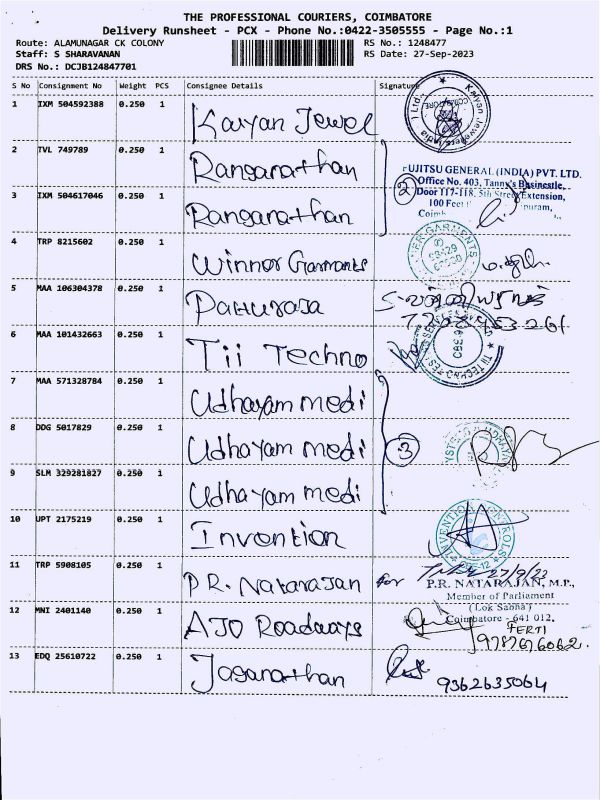 THE PROFESSIONAL COURIERS, COIMBATORE
Delivery Runsheet - PCX - Phone No.:0422-3505555 - Page No.:1
Route: ALAMUNAGAR CK COLONY RS No.: 1248477
Staff: S SHARAVANAN RS Date: 27-Sep-2023
DRS No.: DCJB124847701
S No Consignment No Weight PCS Consignee Details Signature
1 IXM 504592388 0.250 1 Kalyan Jewel
2 TVL 749789 0.250 1 Ranganathan
FUJITSU GENERAL (INDIA) PVT. LTD.
Office No. 403, Tanny's Businestle,
Door 117-118, 5th Street Extension,
100 Feet
3 IXM 504617046 0.250 1 Ranganathan 2
4 TRP 8215602 0.250 1 Winner Garments
5 MAA 106304378 0.250 1 Patturaja
6 MAA 101432663 0.250 1 Tii Techno
7 MAA 571328784 0.250 1 Udhayam medi
8 DDG 5017829 0.250 1 Udhayam medi 3
9 SLM 329281827 0.250 1 Udhayam medi
10 UPT 2175219 0.250 1 Invention
11 TRP 5908105 0.250 1 P.R. Natarajan for 27/9/23
P.R. NATARAJAN, M.P.,
Member of Parliament
(Lok Sabha)
Coimbatore - 641 012.
12 MNI 2401140 0.250 1 AJO Roadways
FERTI
9787676062.
13 EDQ 25610722 0.250 1 Jaganathan 9362635064